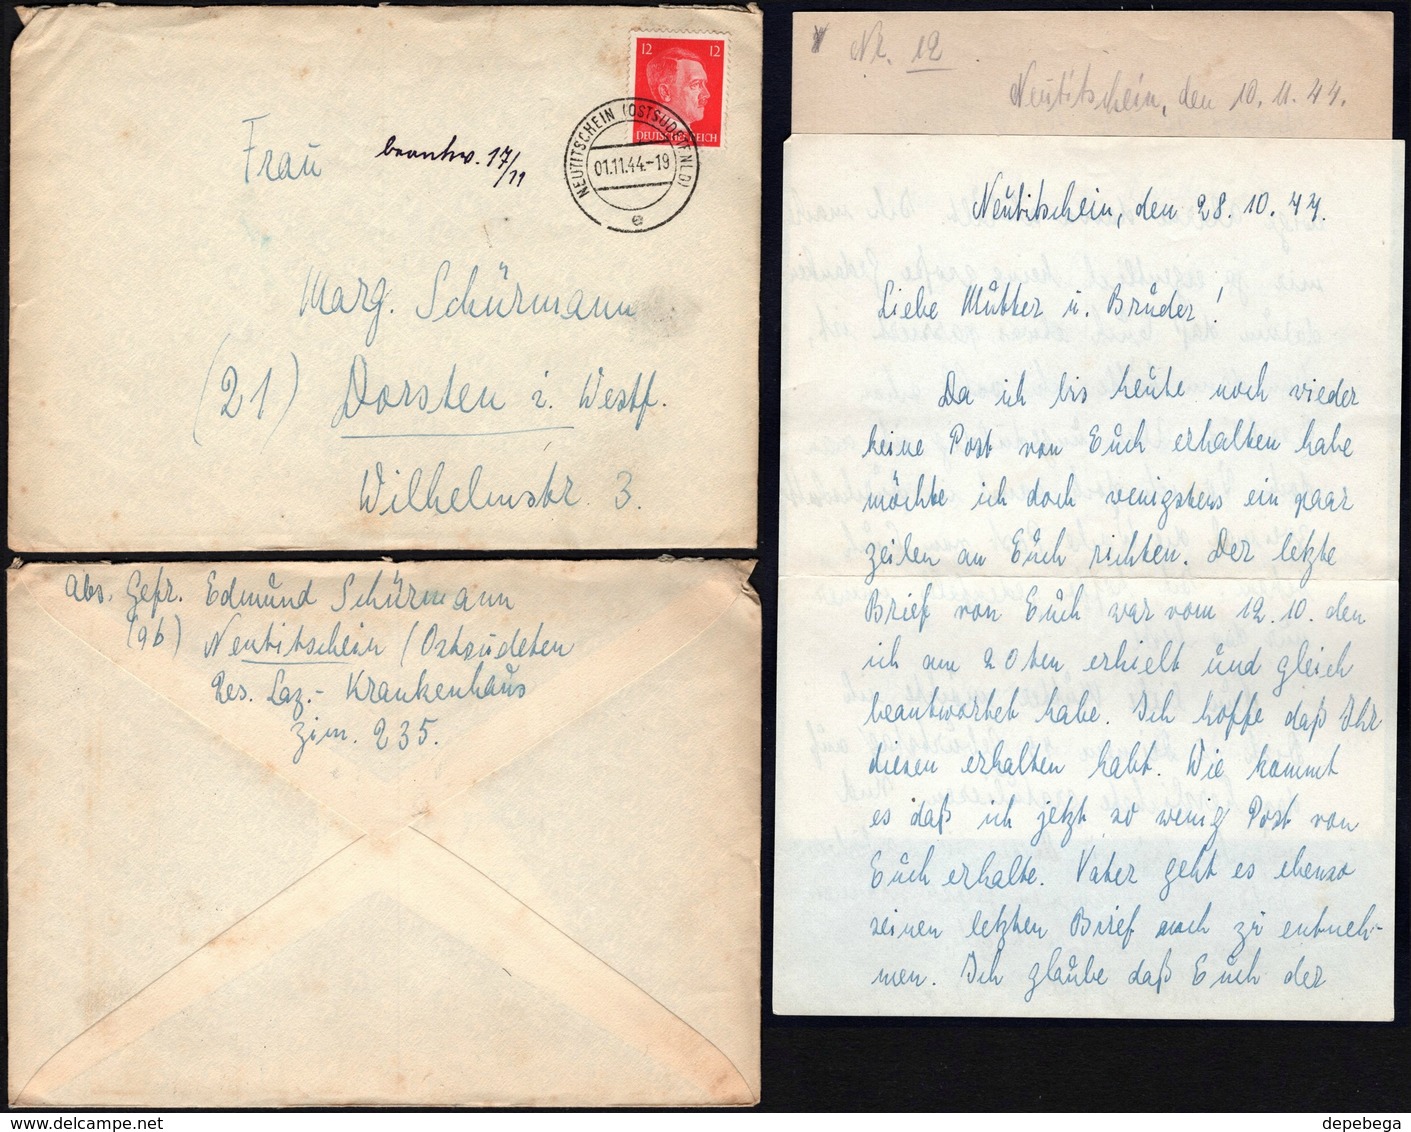 12 12
DEUTSCHES REICH
NEUTITSCHEIN (OSTSUDETENLD)
01.11.44.-19
e
Frau
beantw. 17/11
Marg. Schürmann
(21) Dorsten i. Westf.
Wilhelmstr. 3.
Abs. Gefr. Edmund Schürmann
(9b) Neutitschein (Ostsudeten
Res. Laz.- Krankenhaus
Zim. 235.
Nr. 12
Neutitschein, den 10.11.44.
Neutitschein, den 28.10.44.
Liebe Mutter u. Bruder!
Da ich bis heute noch wieder
keine Post von Euch erhalten habe
möchte ich doch wenigstens ein paar
Zeilen an Euch richten. Der letzte
Brief von Euch war vom 12.10. den
ich am 20ten erhielt und gleich
beantwortet habe. Ich hoffe daß Ihr
diesen erhalten habt. Wie kommt
es daß ich jetzt so wenig Post von
Euch erhalte. Vater geht es ebenso
seinen letzten Brief nach zu entneh-
men. Ich glaube daß Euch der
depebega